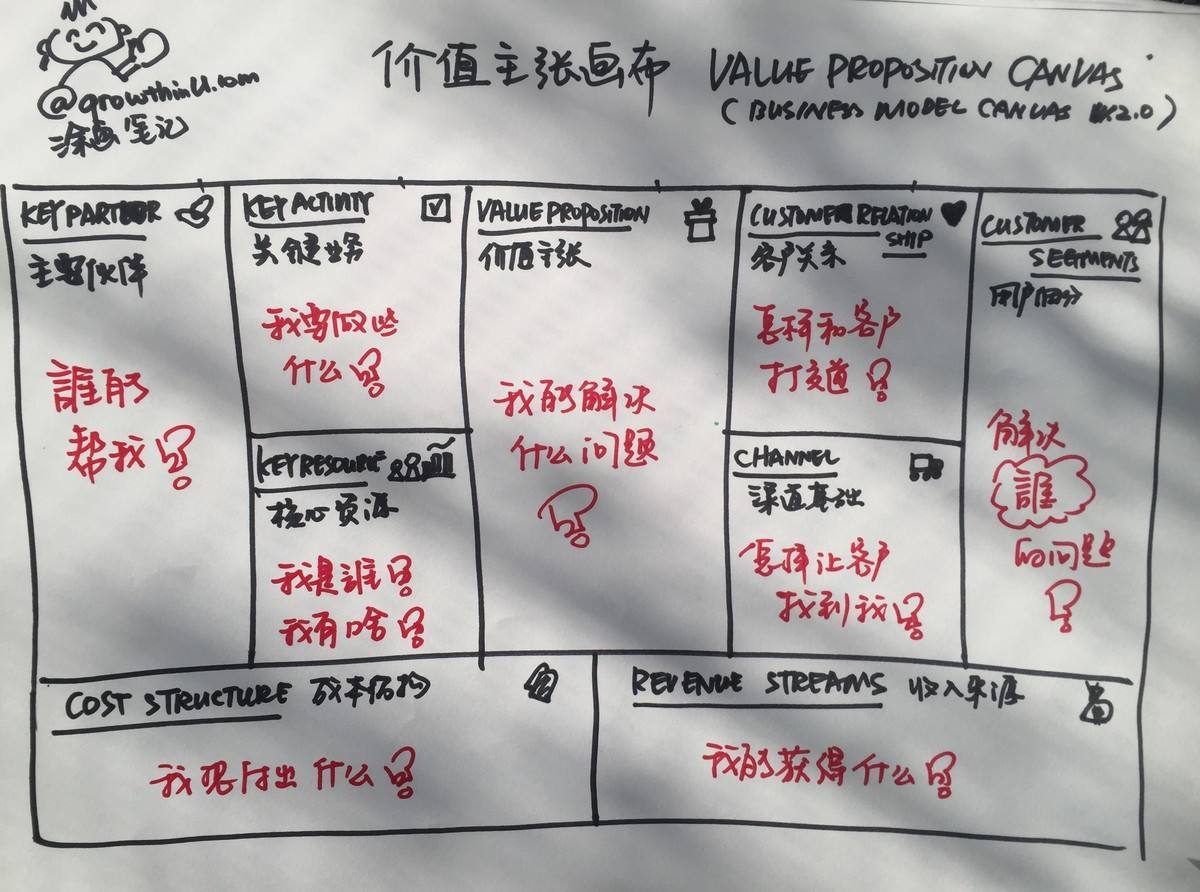 @growthinU.com
涂画笔记
价值主张画布 VALUE PROPOSITION CANVAS
(BUSINESS MODEL CANVAS 2.0)
KEY PARTNER
主要伙伴
誰能
帮我
KEY ACTIVITY
关键业务
我要做些
什么
KEY RESOURCE
核心资源
我是誰
我有啥
VALUE PROPOSITION
价值主张
我能解决
什么问题
CUSTOMER RELATION
SHIP
客户关系
怎样和客户
打交道
CHANNEL
渠道基础
怎样让客户
找到我
CUSTOMER
SEGMENTS
用户细分
解决
誰
的问题
COST STRUCTURE 成本结构
我要付出什么
REVENUE STREAMS 收入来源
我能获得什么